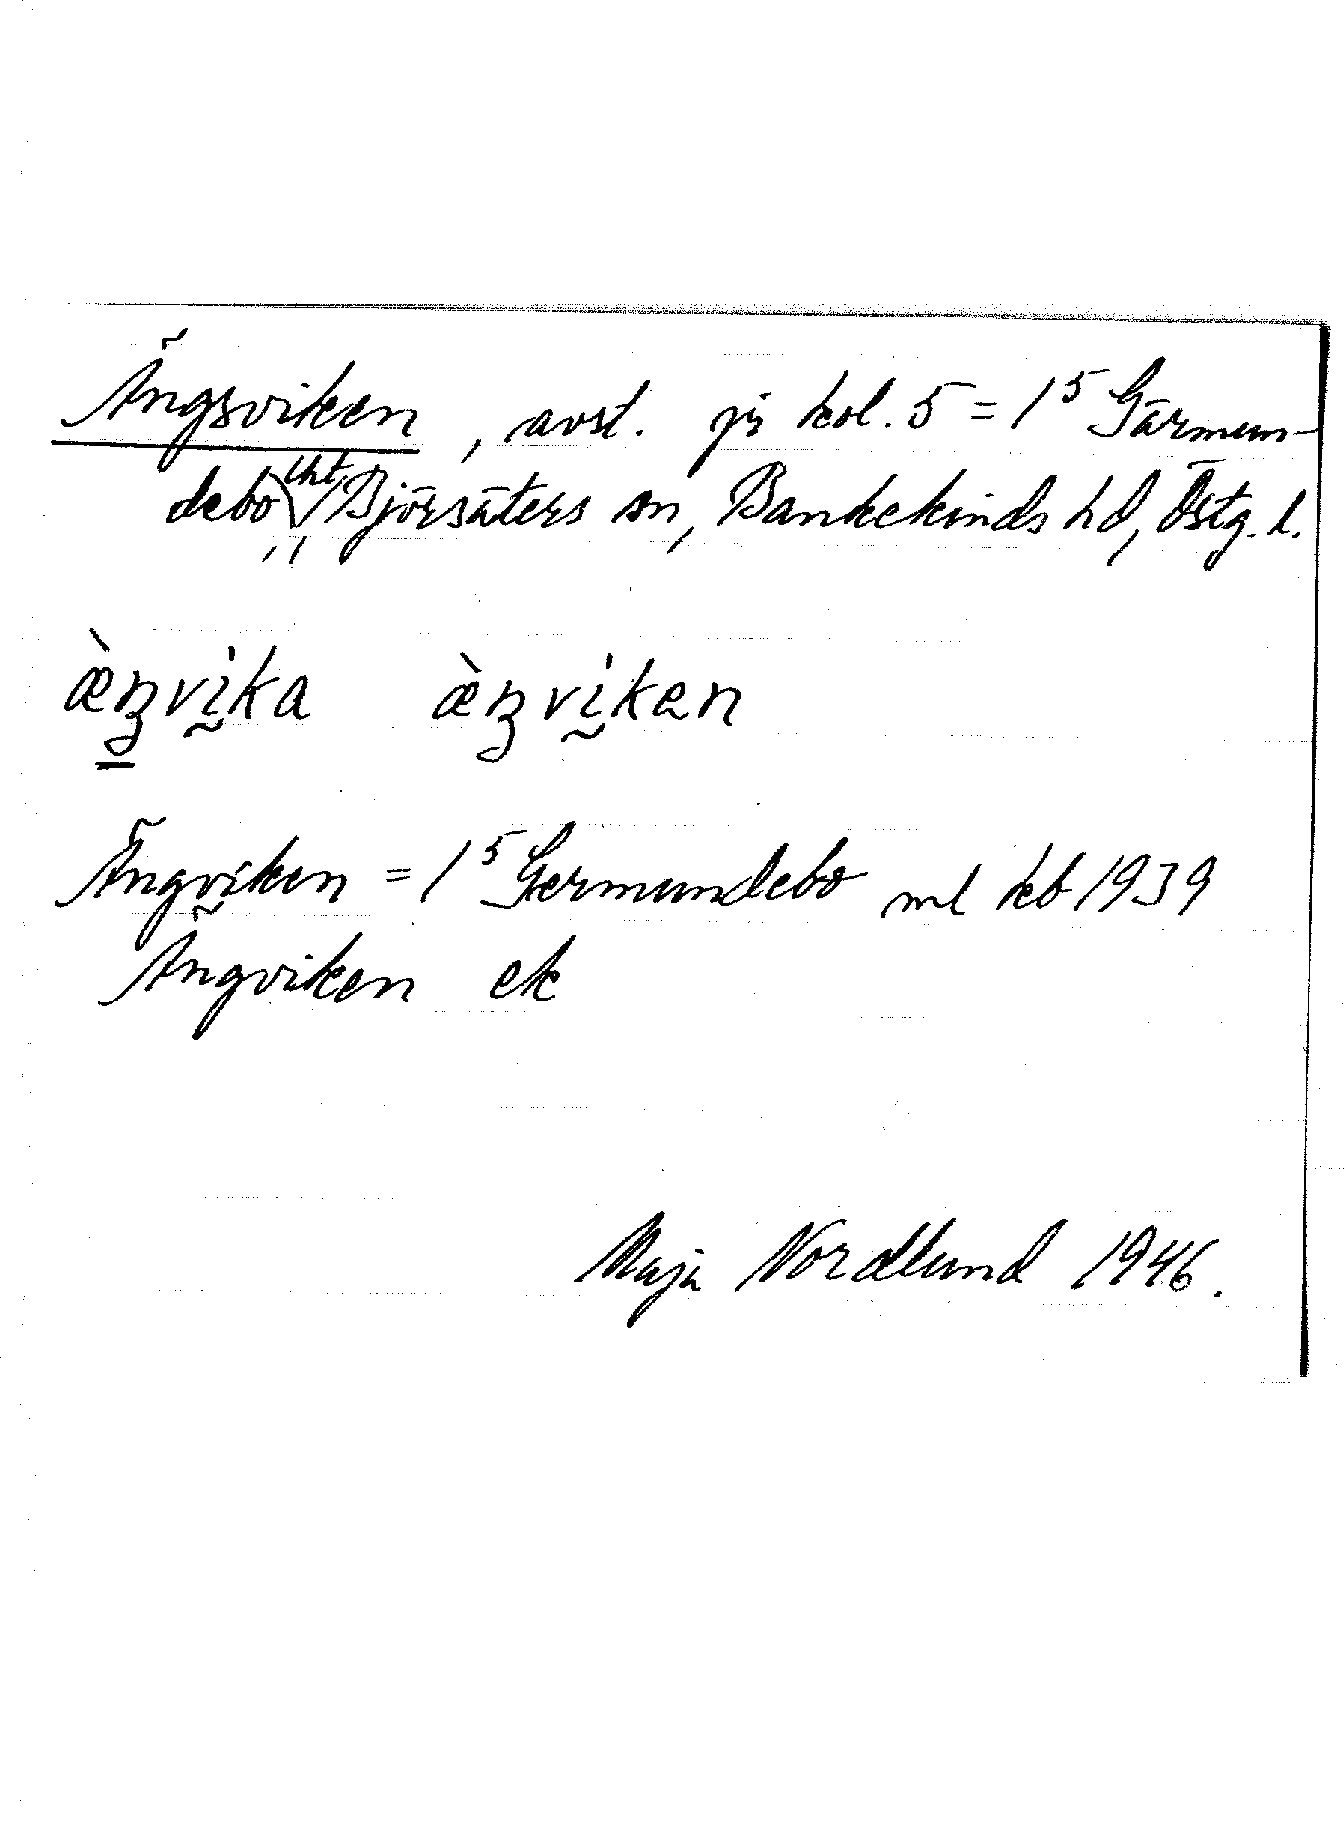 Ängsviken, avst. på kol. 5 = 1⁵ Gärmun-
debo, lht, Björsäters sn, Bankekinds hd, Östg. l.
æ̀ŋvika æ̀ŋvikən
Ängviken = 1⁵ Germundebo ml kb 1939
Ängviken ek
Maja Nordlund 1946.